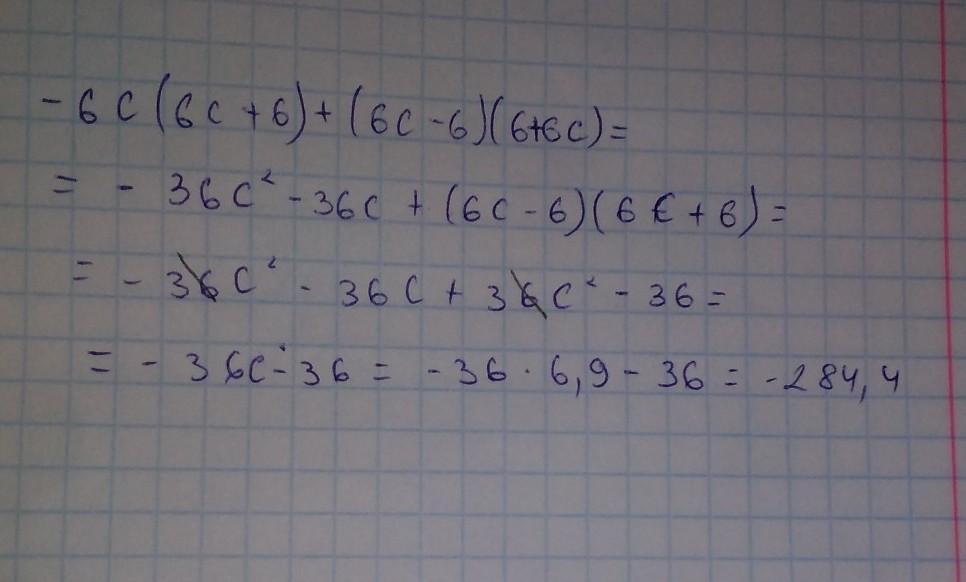 -6c(6c+6)+(6c-6)(6+6c)=
= - 36c² - 36c + (6c-6)(6c+6)=
= - 36c² - 36c + 36c² - 36 =
= - 36c - 36 = -36 · 6,9 - 36 = -284,4